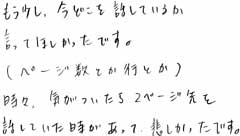 もう少し、今どこを話しているか
言ってほしかったです。
(ページ数とか行とか)
時々、気がついたら2ページ先を
話していた時があって、悲しかったです。